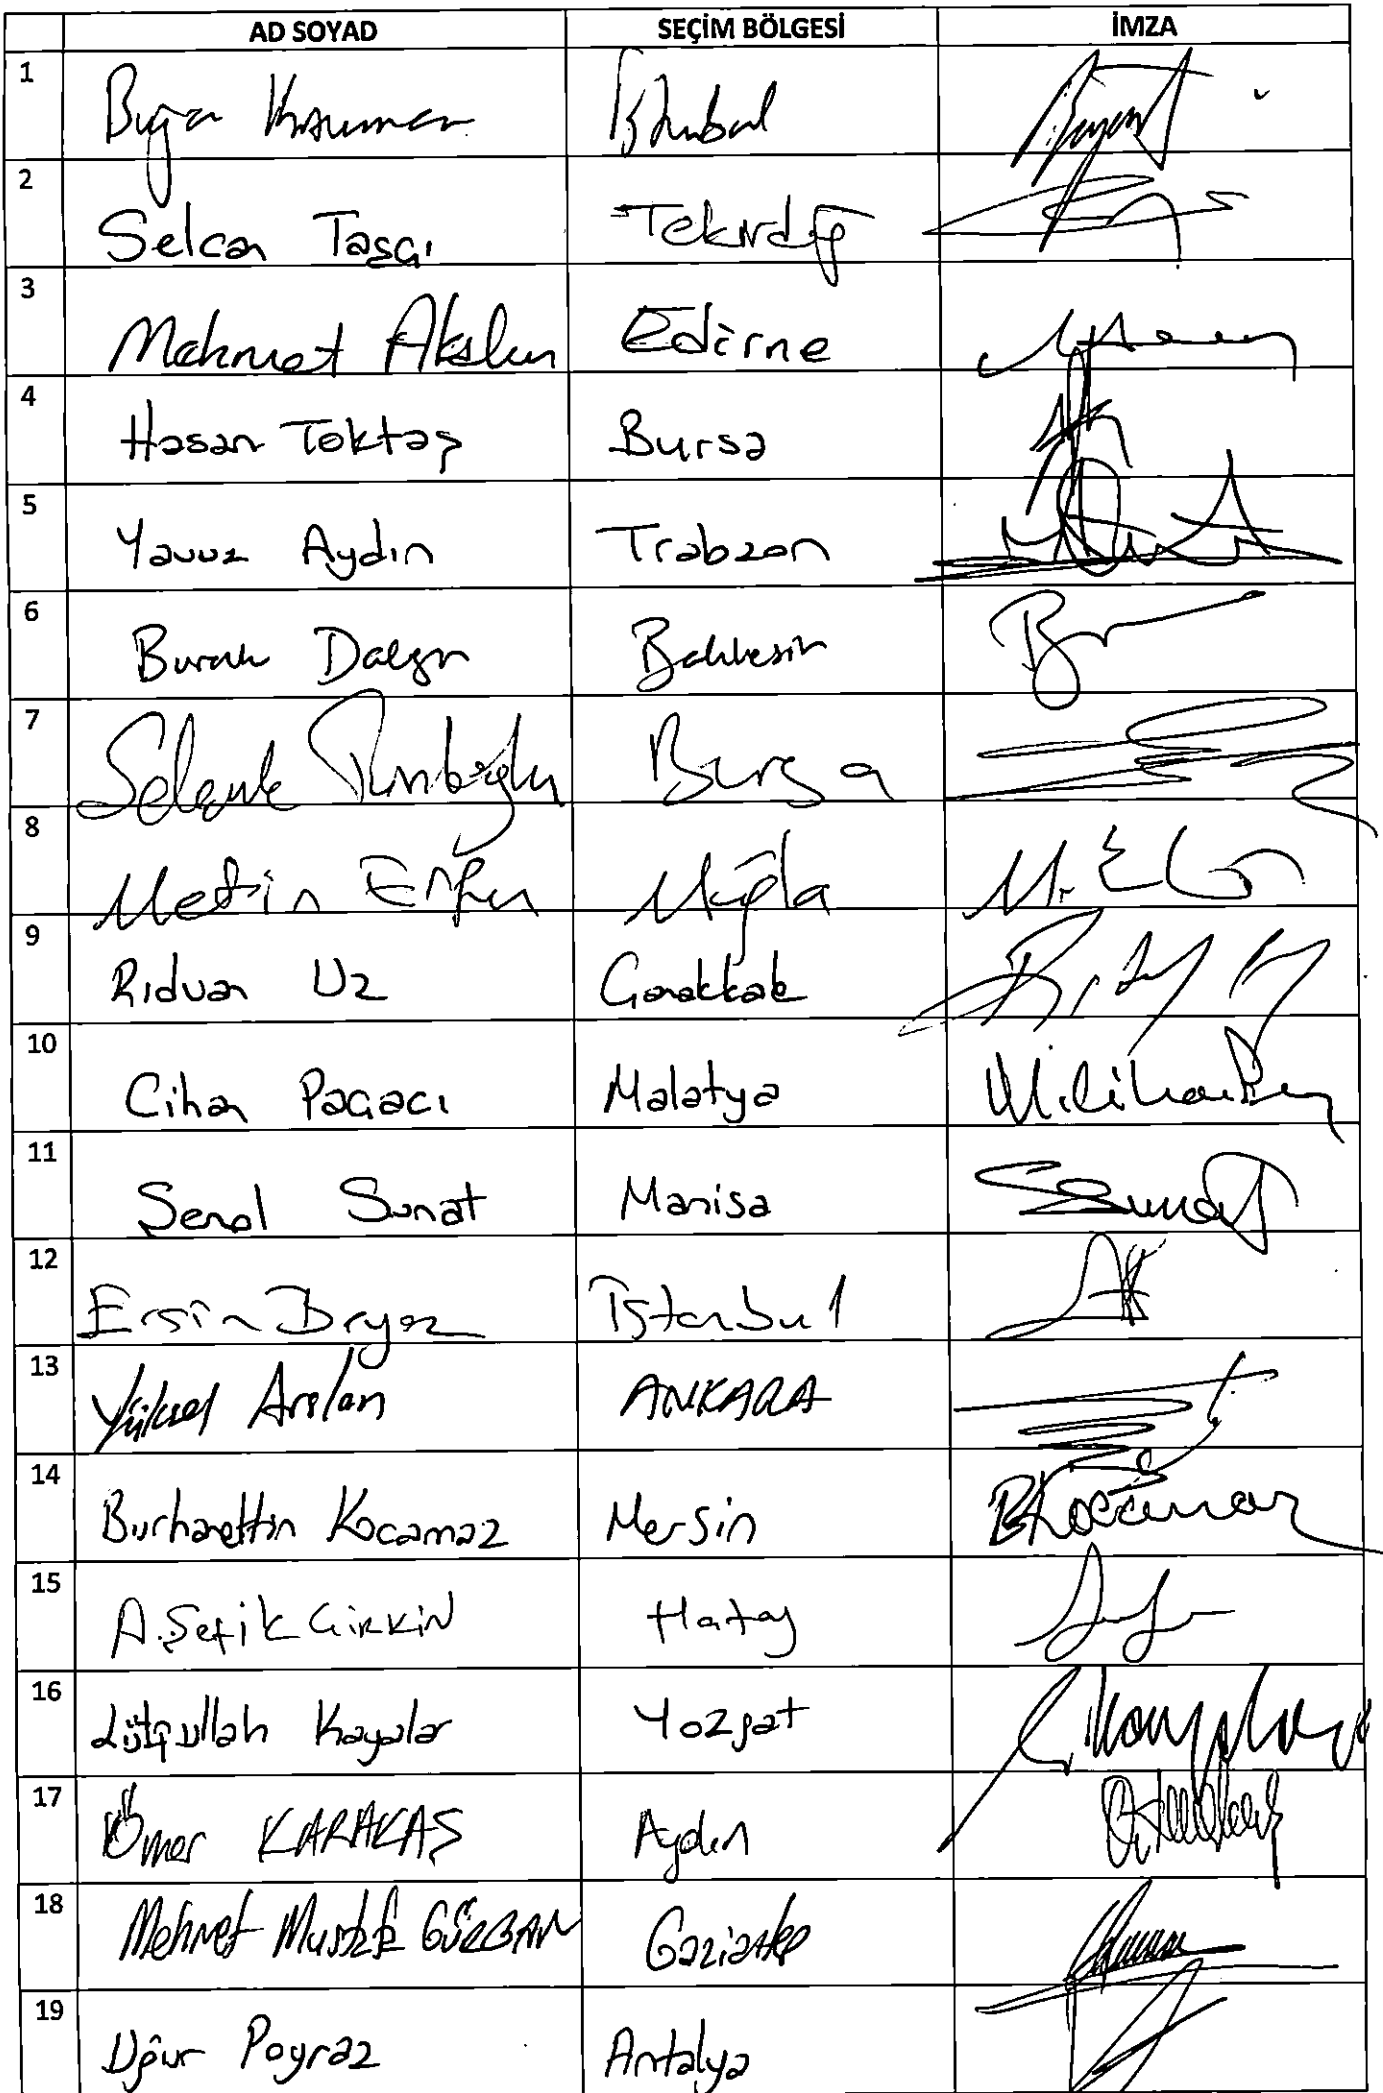 AD SOYAD SEÇİM BÖLGESİ İMZA
1 Buğra Kavuncu İstanbul
2 Selcan Taşcı Tekirdağ
3 Mehmet Akalın Edirne
4 Hasan Toktaş Bursa
5 Yavuz Aydın Trabzon
6 Burak Dalgın Balıkesir
7 Selçuk Türkoğlu Bursa
8 Metin Ergun Muğla
9 Rıdvan Uz Çanakkale
10 Cihan Paçacı Malatya
11 Şenol Sunat Manisa
12 Ersin Beyaz İstanbul
13 Yüksel Arslan ANKARA
14 Burhanettin Kocamaz Mersin
15 A.Şefik ÇİRKİN Hatay
16 Lütfullah Kayalar Yozgat
17 Ömer KARAKAŞ Aydın
18 Mehmet Mustafa GÜRBAN Gaziantep
19 Uğur Poyraz Antalya